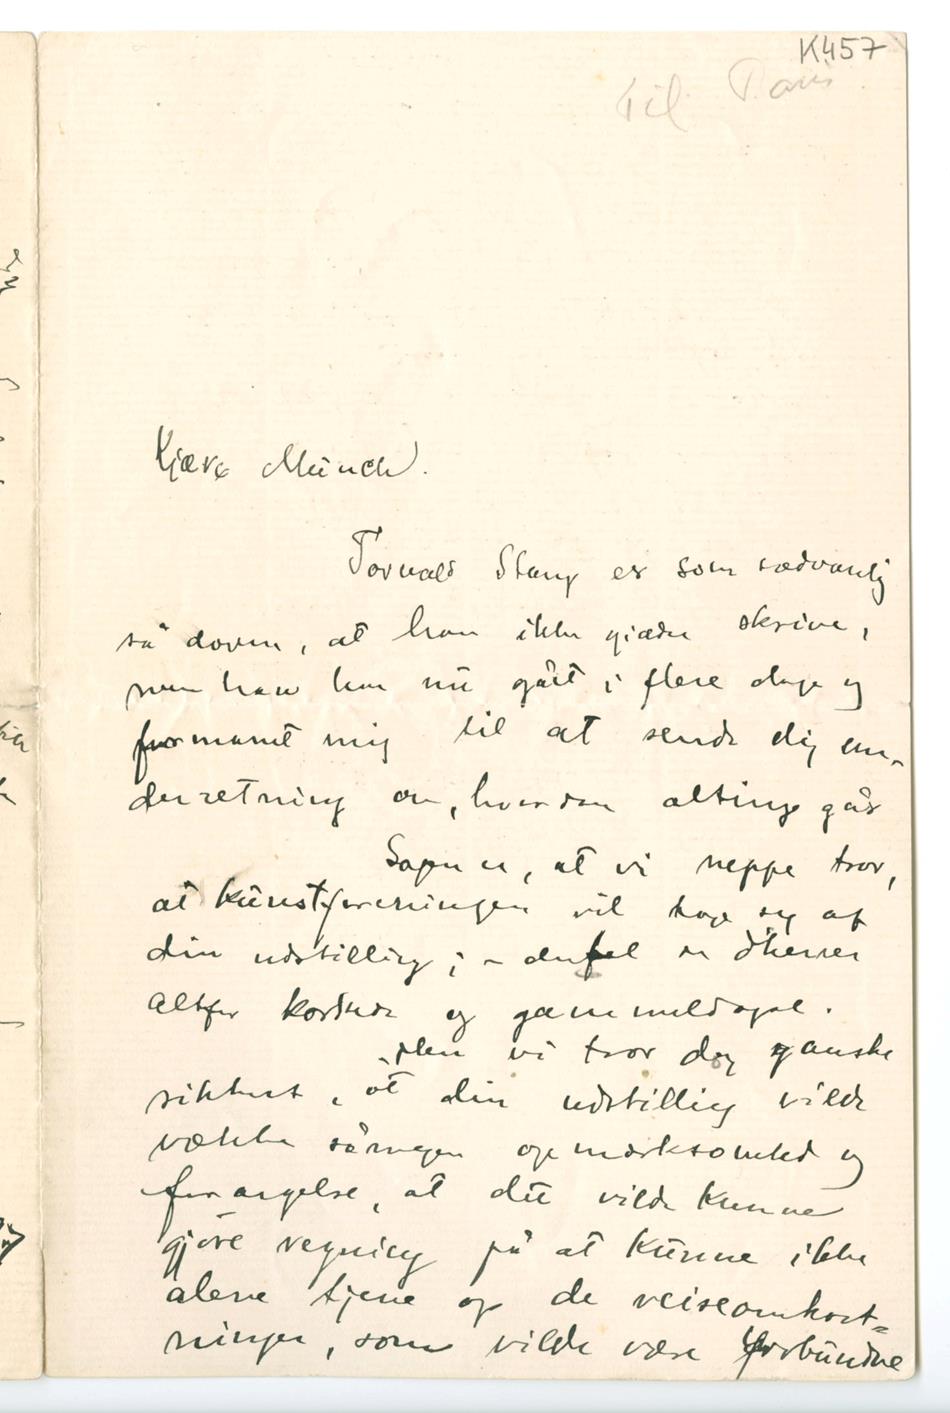 K457
til Paris
Kjære Münch.
Torvald Stang er som sædvanlig
så doven, at han ikke gider skrive,
men han har nu gået i flere dage og
formanet mig til at sende dig un-
derretning om, hvordan alting går
Sagen er, at vi neppe tror,
at kunstforeningen vil tage sig af
din udstilling; – dertil er dherrer
altfor kortsede og gammeldagse.
Men vi tror dog ganske
sikkert, at din udstilling vilde
vække såmegen opmærksomhed og
forargelse, at du vilde kunne
gjøre regning på at kunne ikke
alene tjene op de reiseomkost=
ninger, som vilde være forbundne